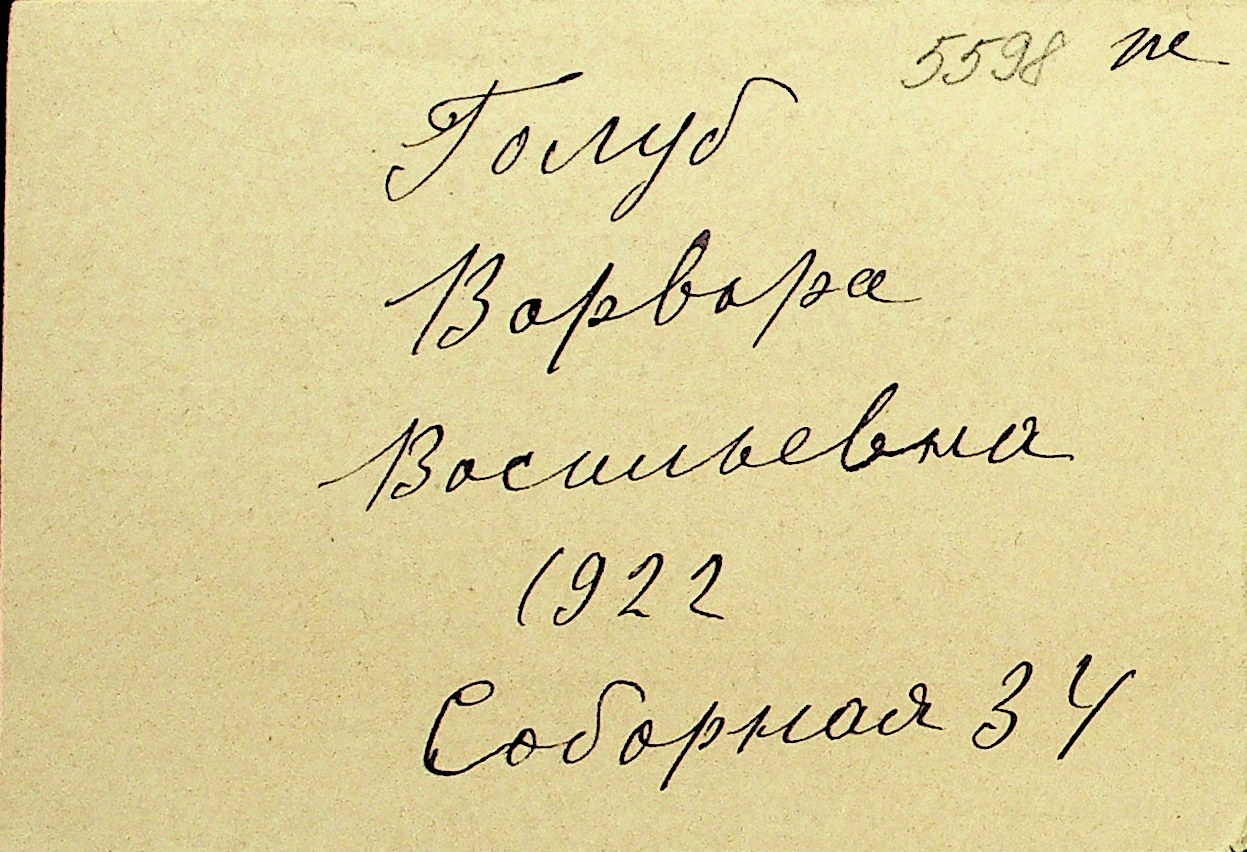 5598 пе
Голуб
Варвара
Васильевна
1922
Соборная 34